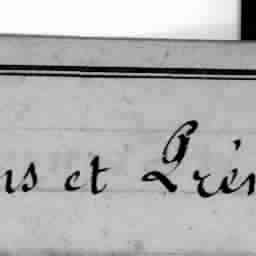 ns et Prén